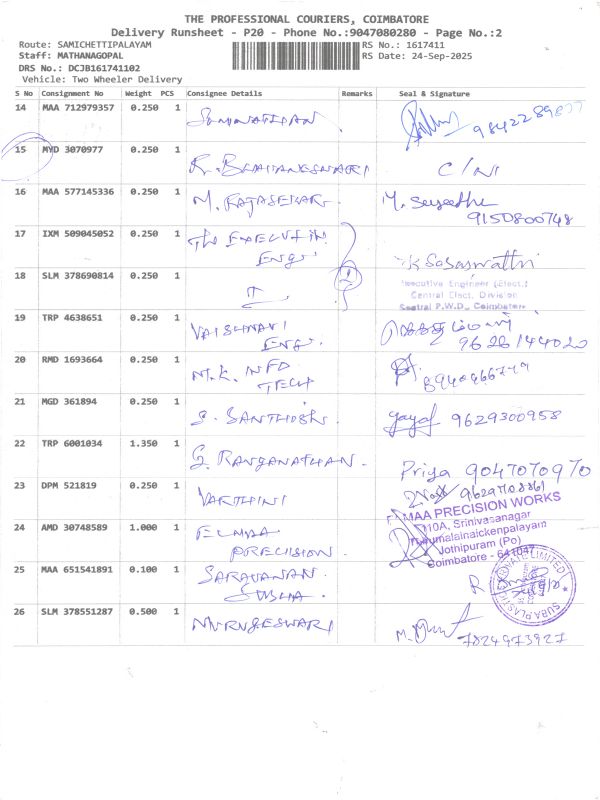 THE PROFESSIONAL COURIERS, COIMBATORE
Delivery Runsheet - P20 - Phone No.:9047080280 - Page No.:2
Route: SAMICHETTIPALAYAM RS No.: 1617411
Staff: MATHANAGOPAL RS Date: 24-Sep-2025
DRS No.: DCJB161741102
Vehicle: Two Wheeler Delivery
S No Consignment No Weight PCS Consignee Details Remarks Seal & Signature
14 MAA 712979357 0.250 1
15 MYD 3070977 0.250 1 C/NI
16 MAA 577145336 0.250 1 M. RAJASEKAR
9150800748
17 IXM 509045052 0.250 1 THE EXECUTIVE
ENGR
18 SLM 378690814 0.250 1
Executive Engineer (Elect.)
Central Elect. Division
P.W.D., Coimbatore
19 TRP 4638651 0.250 1 VAISHNAVI
ENG. 9626144020
20 RMD 1693664 0.250 1 M.K. INFO
TECH
21 MGD 361894 0.250 1 S. SANTHOSH 9629300958
22 TRP 6001034 1.350 1 G. RANGANATHAN. Priya 9047070970
23 DPM 521819 0.250 1 VARTHINI 9629708861
24 AMD 30748589 1.000 1
PRECISION.
MAA PRECISION WORKS
110A, Srinivasanagar
Thirumalainaickenpalayam
Jothipuram (Po)
Coimbatore - 641047
25 MAA 651541891 0.100 1 SARAVANAN.
26 SLM 378551287 0.500 1 MURUGESWARI 7824973927